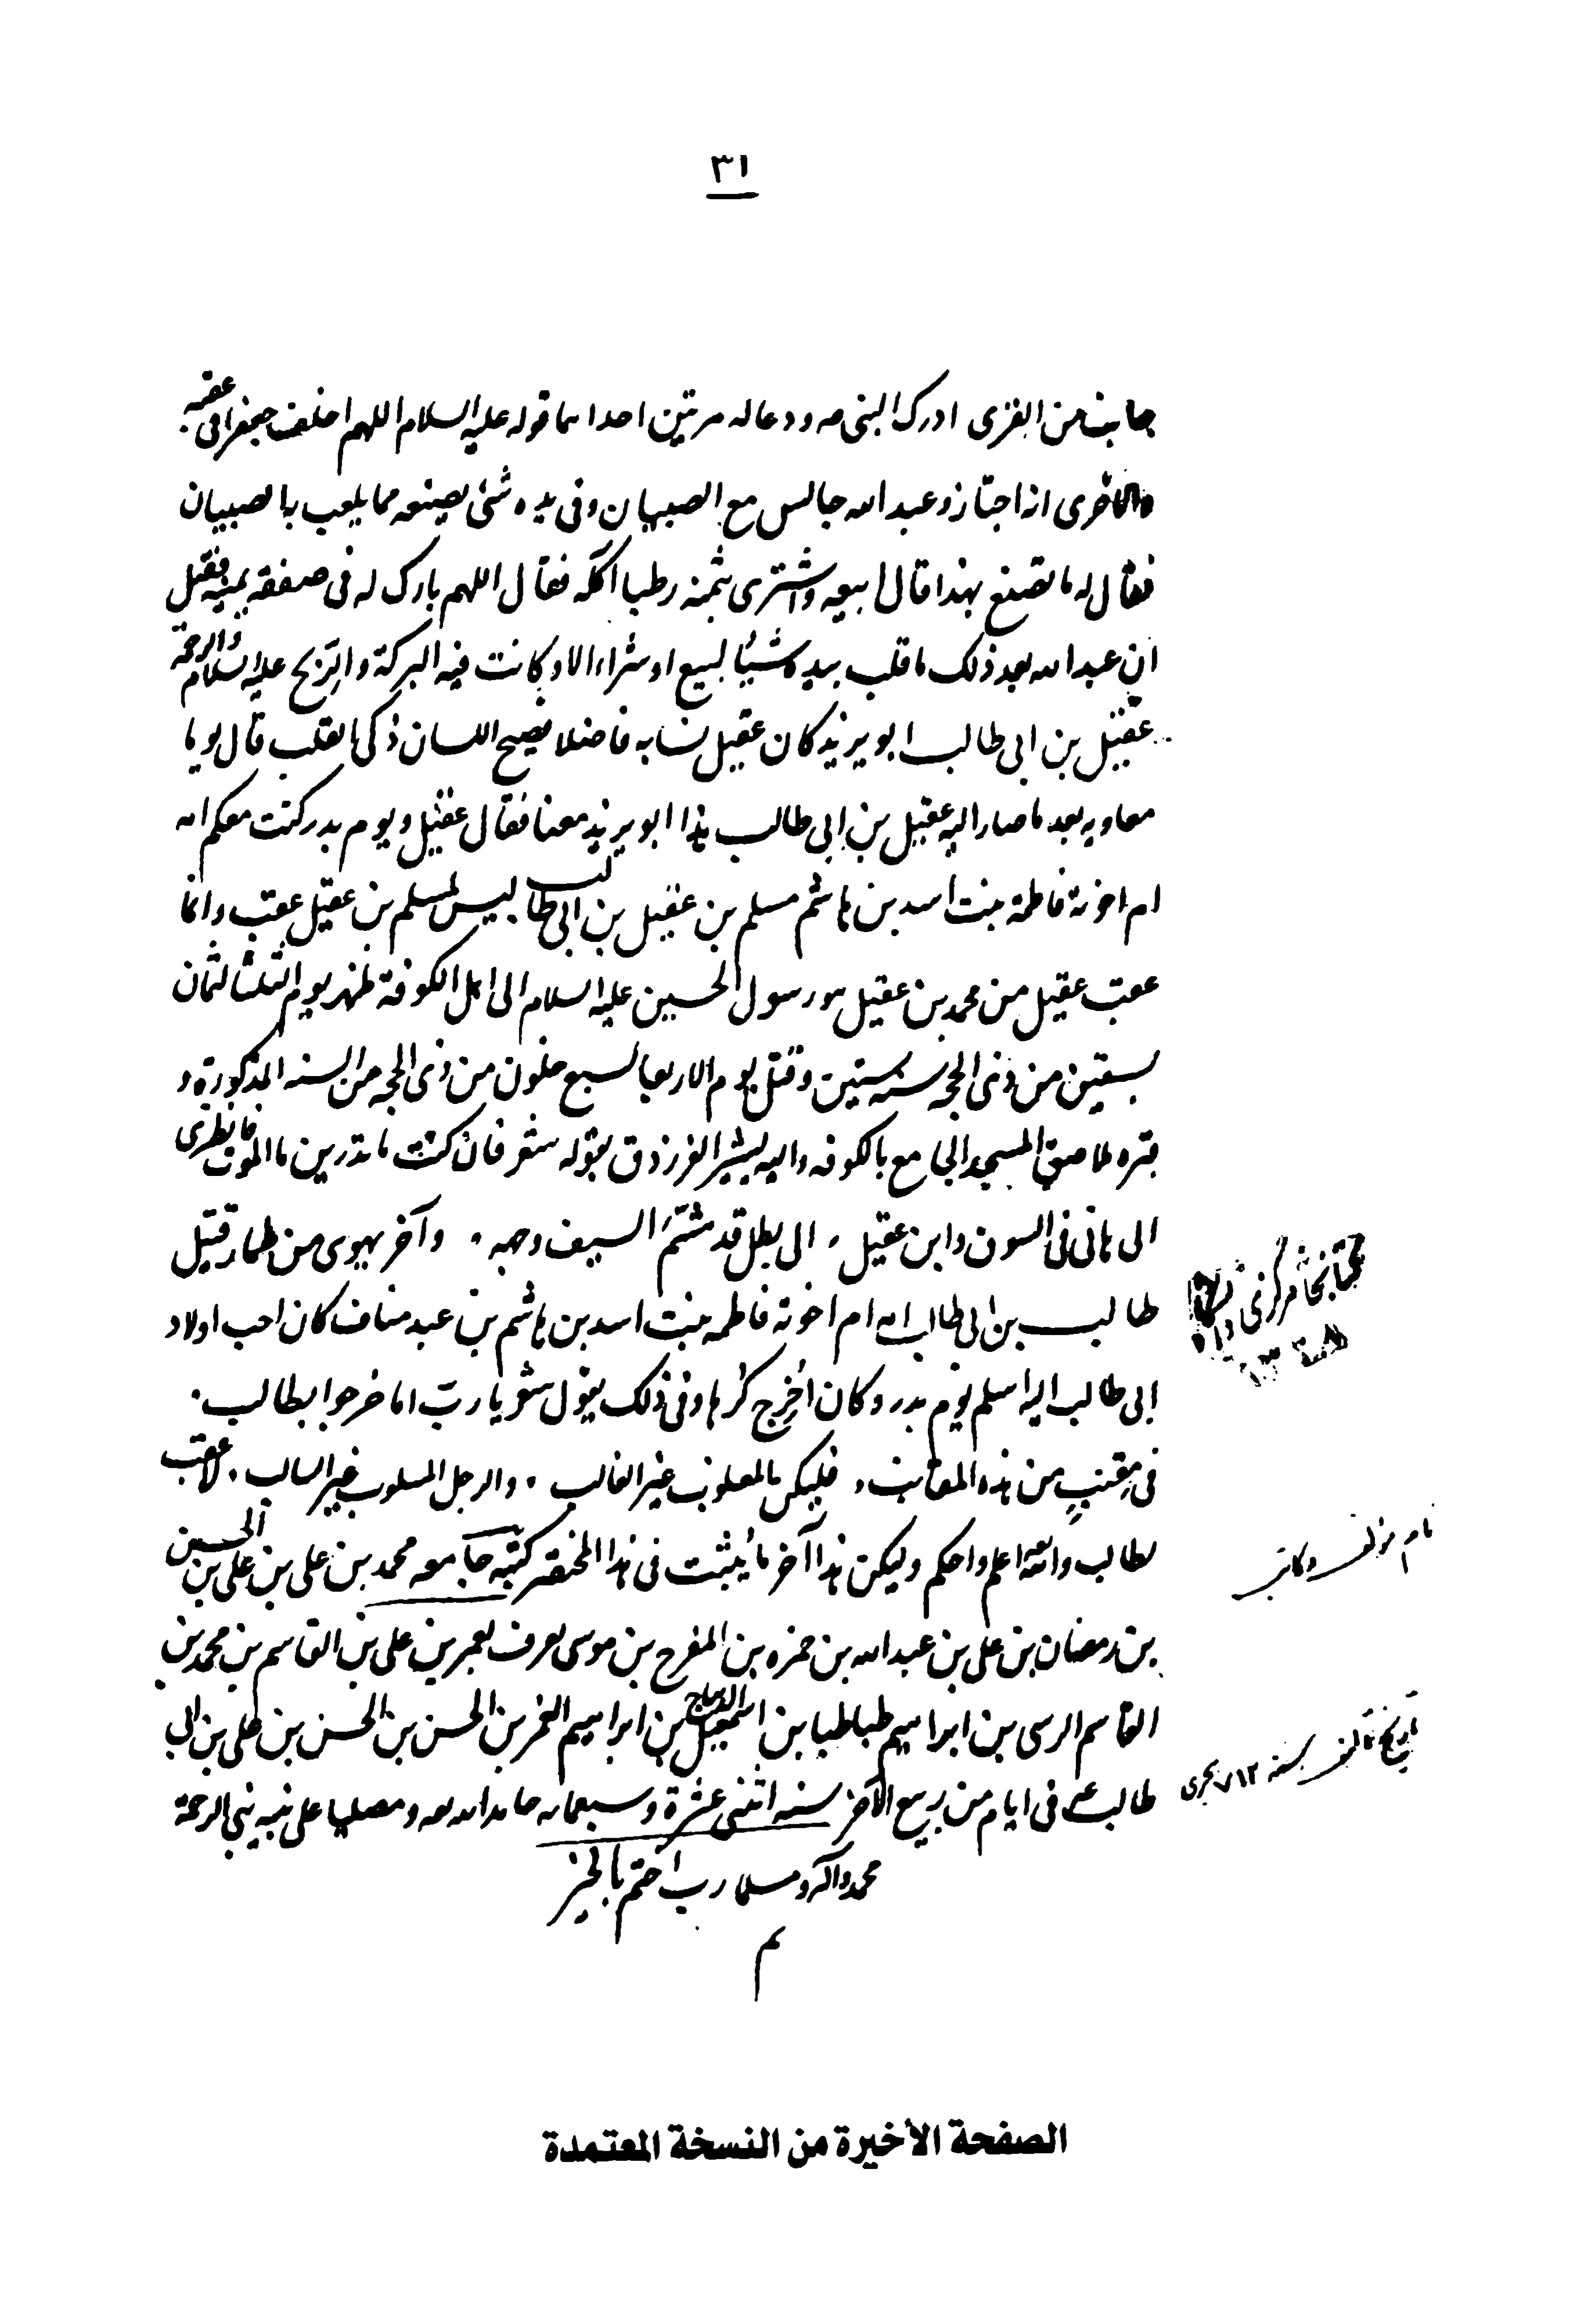 ٣١
جانب من القرى ادرك النبى ص ودعا له مرتين احداىما قوله عليه السلام اللهم اخلف جعفرا فى عقبه
والاخرى انه اجتاز وعبد الله جالس مع الصبيان وفى يده شئ يصنعه مما يلعب به الصبيان
فقال له ما تصنع بهذا قال ابيعه واشترى بثمنه رطبا آكله فقال اللهم بارك له فى صفقة يمينه فقيل
ان عبد الله بعد ذلك ما قلب بيده شيئا لبيع او شراء الا وكانت فيه البركة والربح عليه السلام والرحمة
عقيل بن ابى طالب ابو يزيد كان عقيل نسابه فاضلا فصيح اللسان ذكى القلب قال يوما
معاويه بعد ما صار اليه عقيل بن ابى طالب هذا ابو يزيد معنا فقال عقيل ويوم بدر كنت معكم امه
ام اخوته فاطمة بنت اسد بن هاشم مسلم بن عقيل بن ابى طالب ليس لمسلم بن عقيل عقب وانما
عقب عقيل من محمد بن عقيل هو رسول الحسين عليه السلام الى اهل الكوفة ظهر يوم الثلثا لثمان
بقين من ذى الحجه سنه ستين وقتل يوم الاربعا لسبع خلون من ذى الحجه من السنه المذكورة و
قبره ملاصق المسجد الجامع بالكوفه واليه يشير الفرزدق بقوله شعر فان كنت ما تدرين ما الموت فانظرى
الى هانى فى السوق وابن عقيل . الى بطل قد هشم السيف وجهه . وآخر يهوى من طمار قتيل
طالب بن ابى طالب امه ام اخوته فاطمه بنت اسد بن هاشم بن عبد مناف كان احب اولاد
ابى طالب اليه اسلم يوم بدر وكان اخرج كرها وفى ذلك يقول شعر يا رب اما خرجوا بطالب .
فى مقنب من هذه المقانب . فليكن المغلوب غير الغالب . والرجل المسلوب غير السالب . لا عقب
لطالب والله اعلم واحكم وليكن هذا آخر ما يثبت فى هذا المختصر كتبه جامعه محمد بن على بن على بن الحسين
بن رمضان بن على بن عبد الله بن حمزه بن المفرج بن موسى يعرف بعمر بن على بن القاسم بن محمد بن
القاسم الرسى بن ابراهيم طباطبا بن اسمعيل الديباج بن ابراهيم الغمر بن الحسن بن الحسن بن على بن ابى
طالب فى ايام من ربيع الآخر سنه اثنتى عشرة وسبعمائه حامدا لله ومصليا على نبيه نبى الرحمة
محمد وآله ومسلما رب اختم بالخير
تم
كتابخانه مركزى دانشگاه
نام مؤلف وكاتب
تاريخ تأليف سنه ٧١٢ هجرى
الصفحة الأخيرة من النسخة المعتمدة